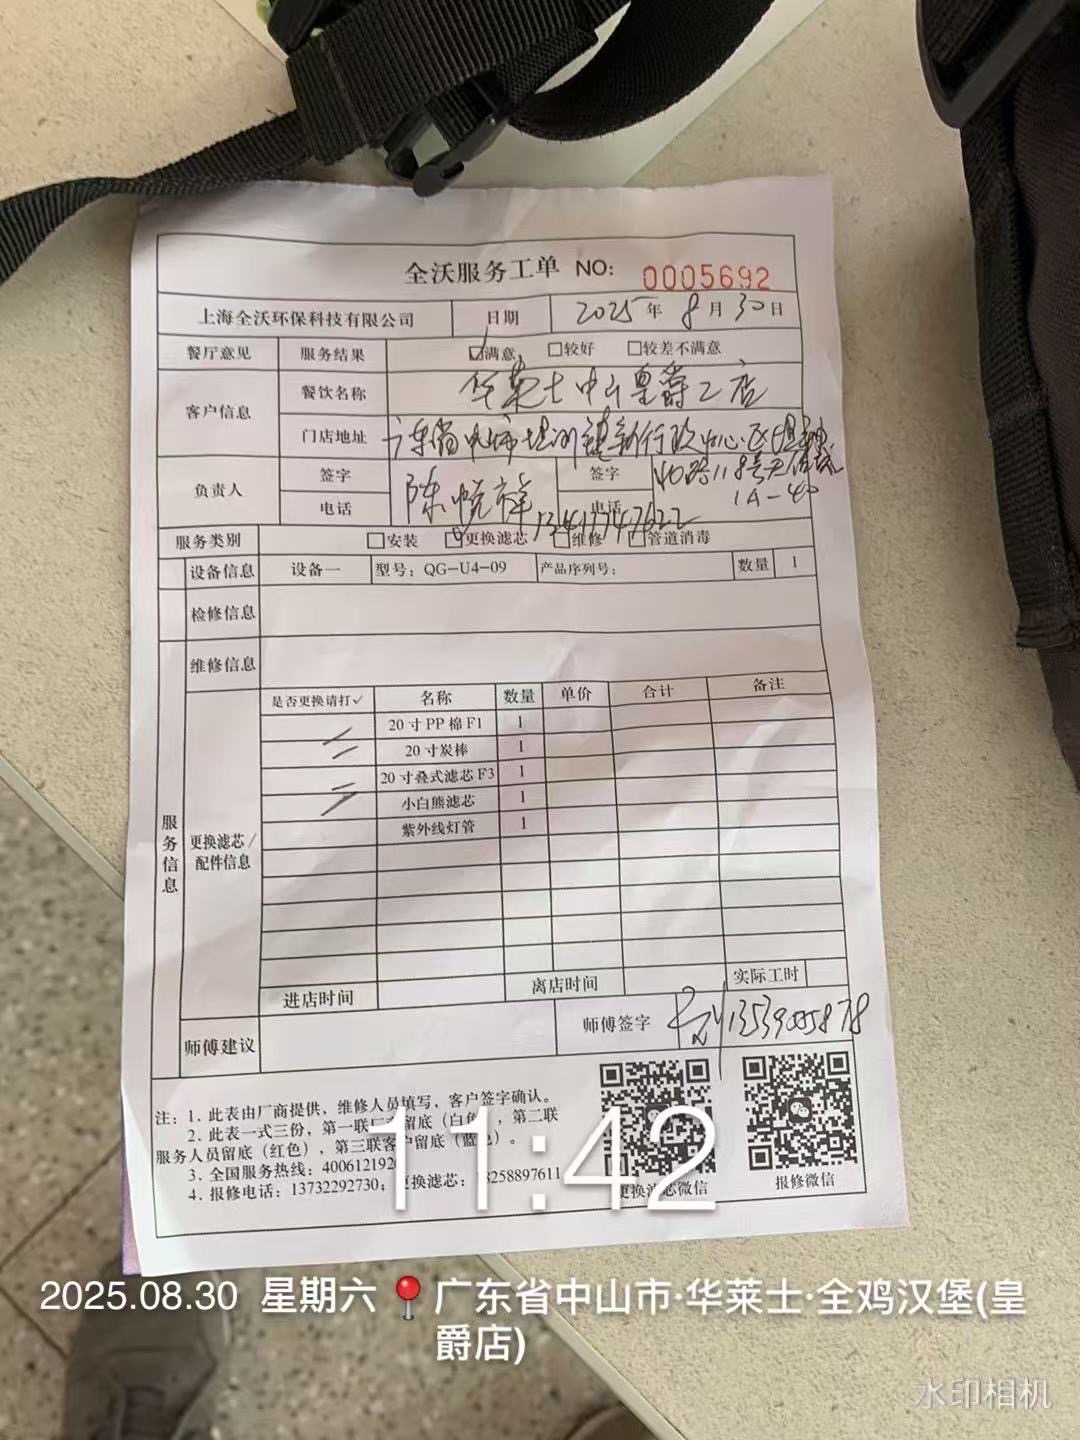 全沃服务工单 NO: 0005692
上海全沃环保科技有限公司 日期 2025年 8月 30日
餐厅意见 服务结果 ☑满意 □较好 □较差不满意
客户信息 餐饮名称 华莱士中山皇爵2店
门店地址 广东省中山市坦洲镇新行政中心区坦神
北路118号 1A-40
负责人 签字 陈 祥 签字
电话 电话
服务类别 □安装 □更换滤芯 □维修 □管道消毒
设备信息 设备一 型号：QG-U4-09 产品序列号： 数量 1
检修信息
维修信息
服务信息
更换滤芯/配件信息
是否更换请打✓ 名称 数量 单价 合计 备注
20寸PP棉F1 1
20寸炭棒 1
20寸叠式滤芯F3 1
小白熊滤芯 1
紫外线灯管 1
进店时间 离店时间 实际工时
师傅建议 师傅签字 13539005878
注：1. 此表由厂商提供，维修人员填写，客户签字确认。
2. 此表一式三份，第一联 留底（白色），第二联
服务人员留底（红色），第三联客户留底（蓝色）。
3. 全国服务热线：400612192
4. 报修电话：13732292730；更换滤芯： 8258897611
更换滤芯微信 报修微信
11:42
2025.08.30 星期六 📍广东省中山市·华莱士·全鸡汉堡(皇
爵店)
水印相机